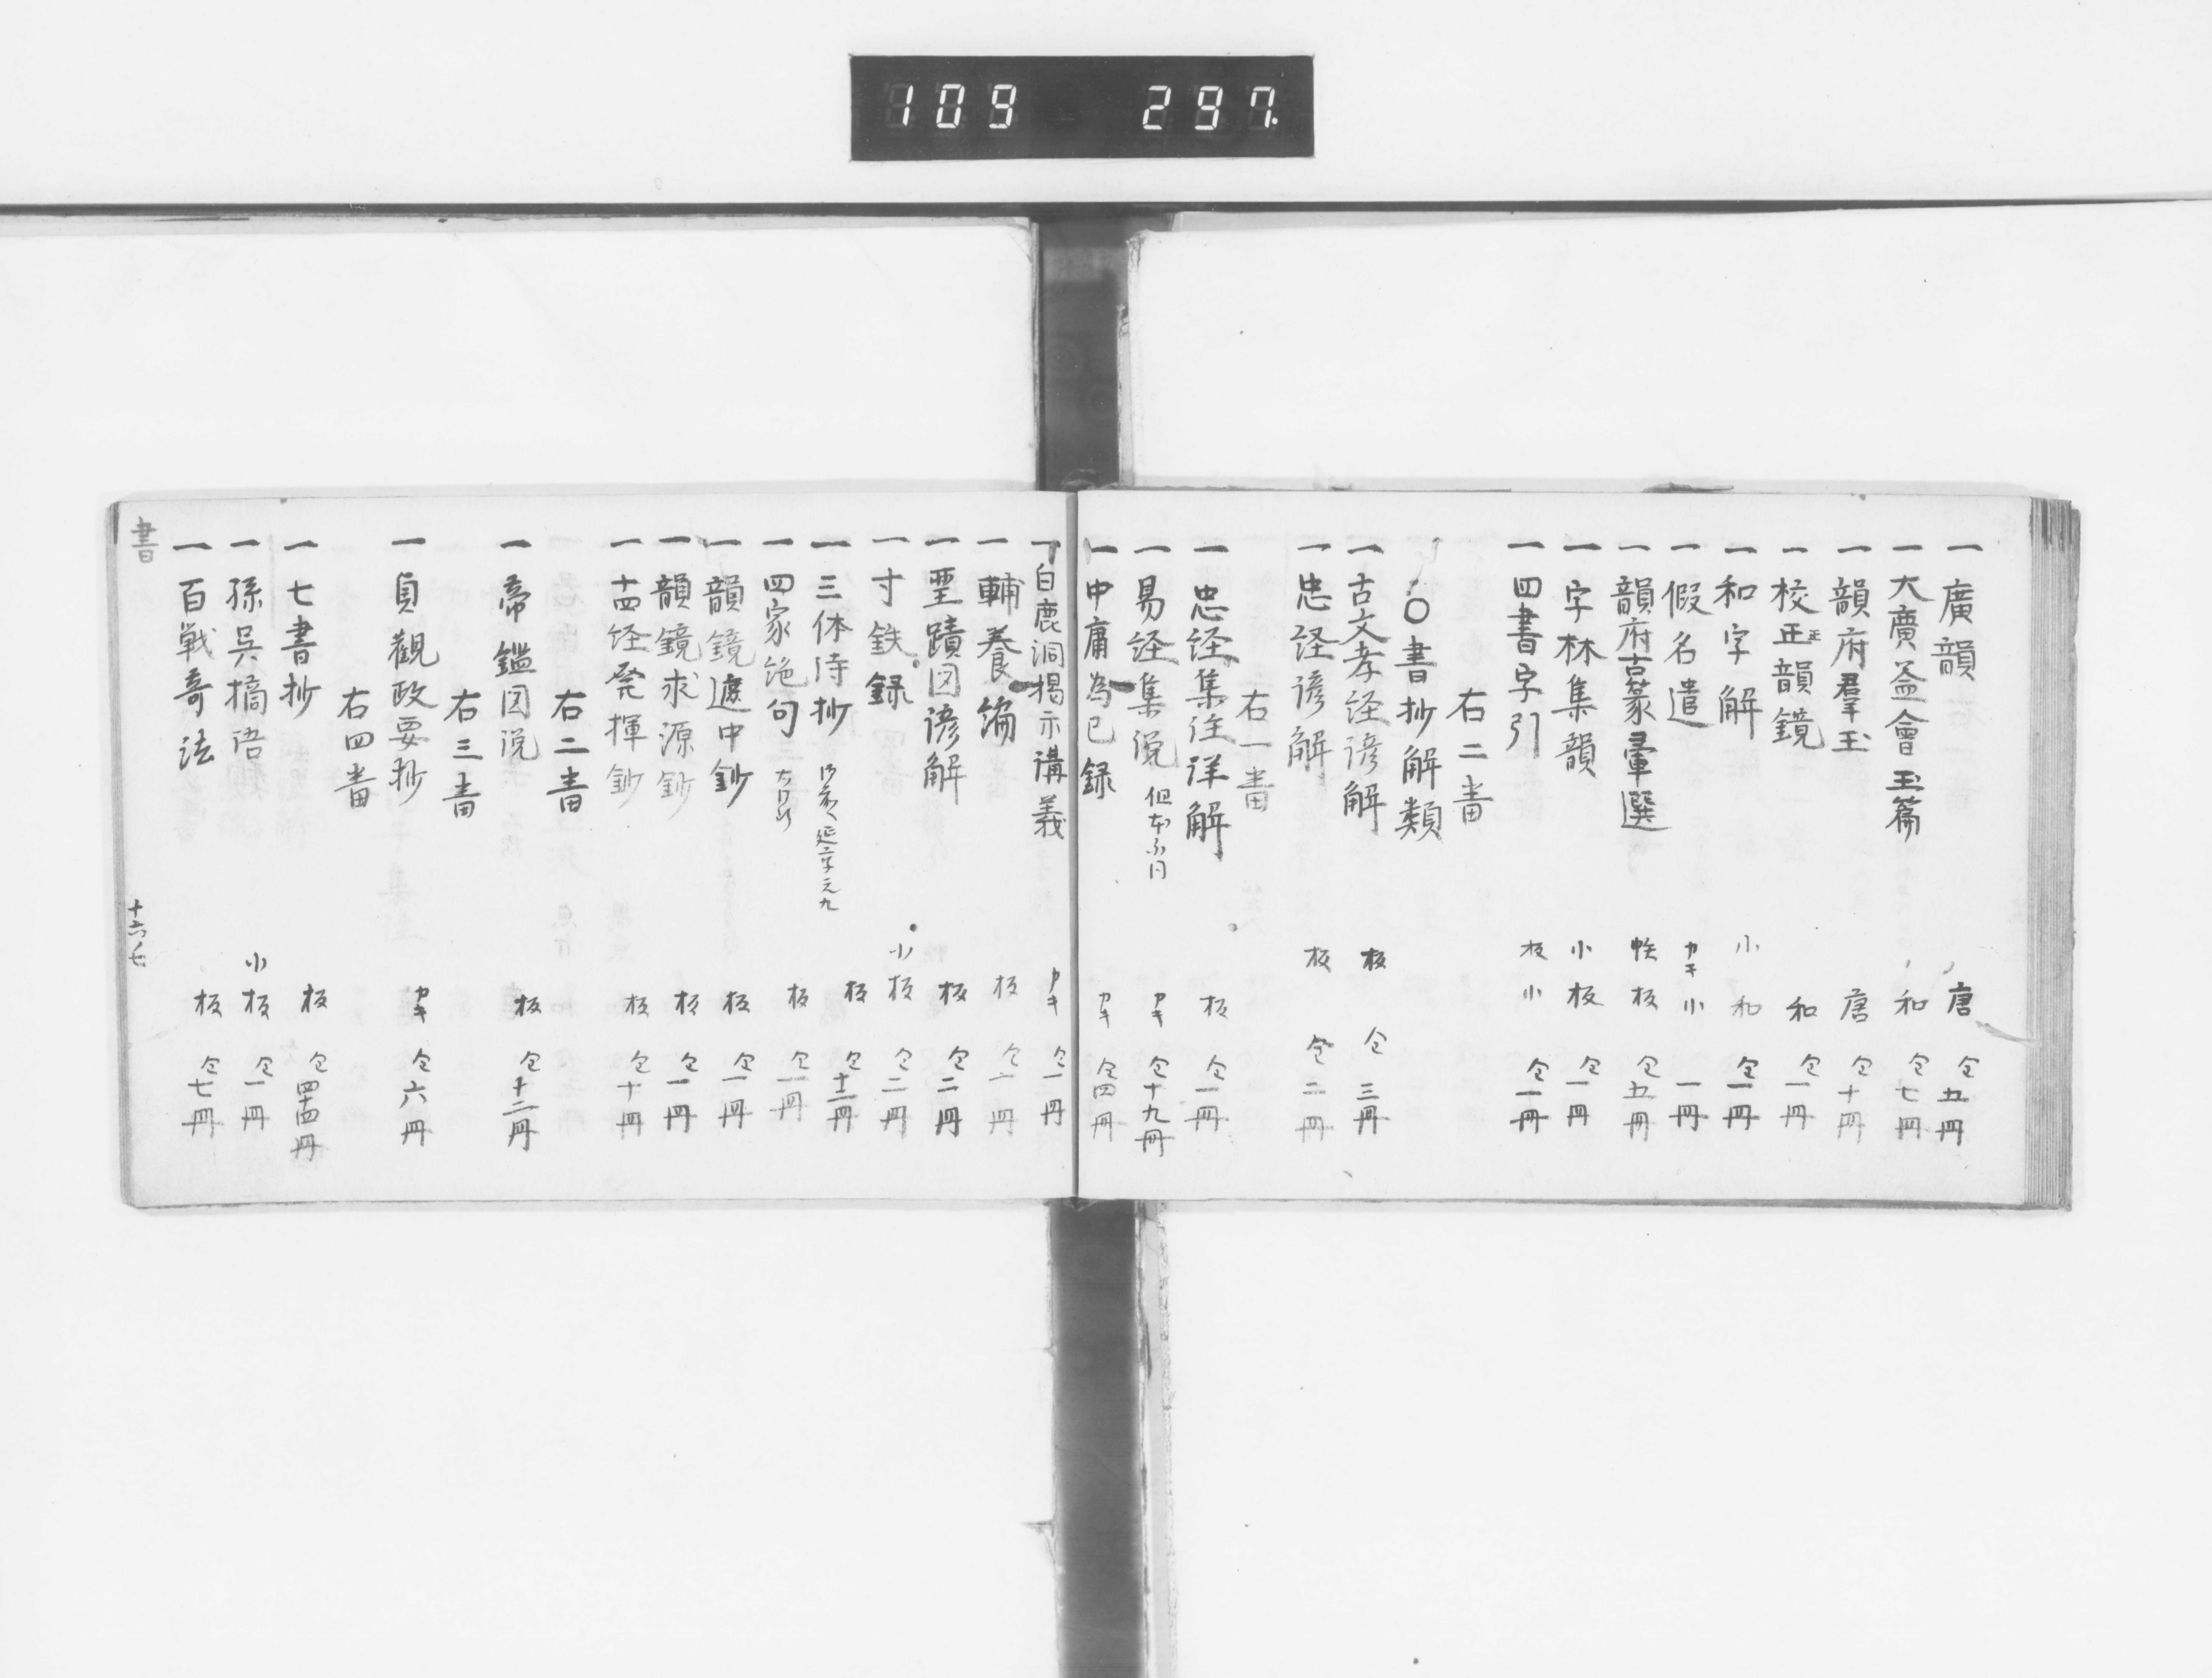 109 297.
一 廣韻 唐 仝五冊
一 大廣益會玉篇 和 仝七冊
一 韻府羣玉 唐 仝十冊
一 校正韻鏡 和 仝一冊
一 和字解 小 和 仝一冊
一 假名遣 カキ 小 一冊
一 韻府古篆彙選 帙 板 仝五冊
一 字林集韻 小 板 仝一冊
一 四書字引 板 小 仝一冊
右二畨
〇書抄解類
一 古文孝経諺解 板 仝三冊
一 忠経諺解 板 仝二冊
右一畨
一 忠経集注詳解 板 仝一冊
一 易経集説 但本ふ同 カキ 仝十九冊
一 中庸為己録 カキ 仝四冊
一 白鹿洞掲示講義 カキ 仝一冊
一 輔養編 板 仝一冊
一 聖蹟図諺解 板 仝二冊
一 寸鉄録 小 板 仝二冊
一 三体诗抄 延享元九 板 仝十二冊
一 四家絶句 板 仝一冊
一 韻鏡遮中鈔 板 仝一冊
一 韻鏡求源鈔 板 仝一冊
一 十四経発揮鈔 板 仝十冊
右二畨
一 帝鑑図説 板 仝十二冊
右三畨
一 貞觀政要抄 カキ 仝六冊
右四畨
一 七書抄 板 仝四十四冊
一 孫呉摘语 小 板 仝一冊
一 百戦奇法 板 仝七冊
書 十六ノ七